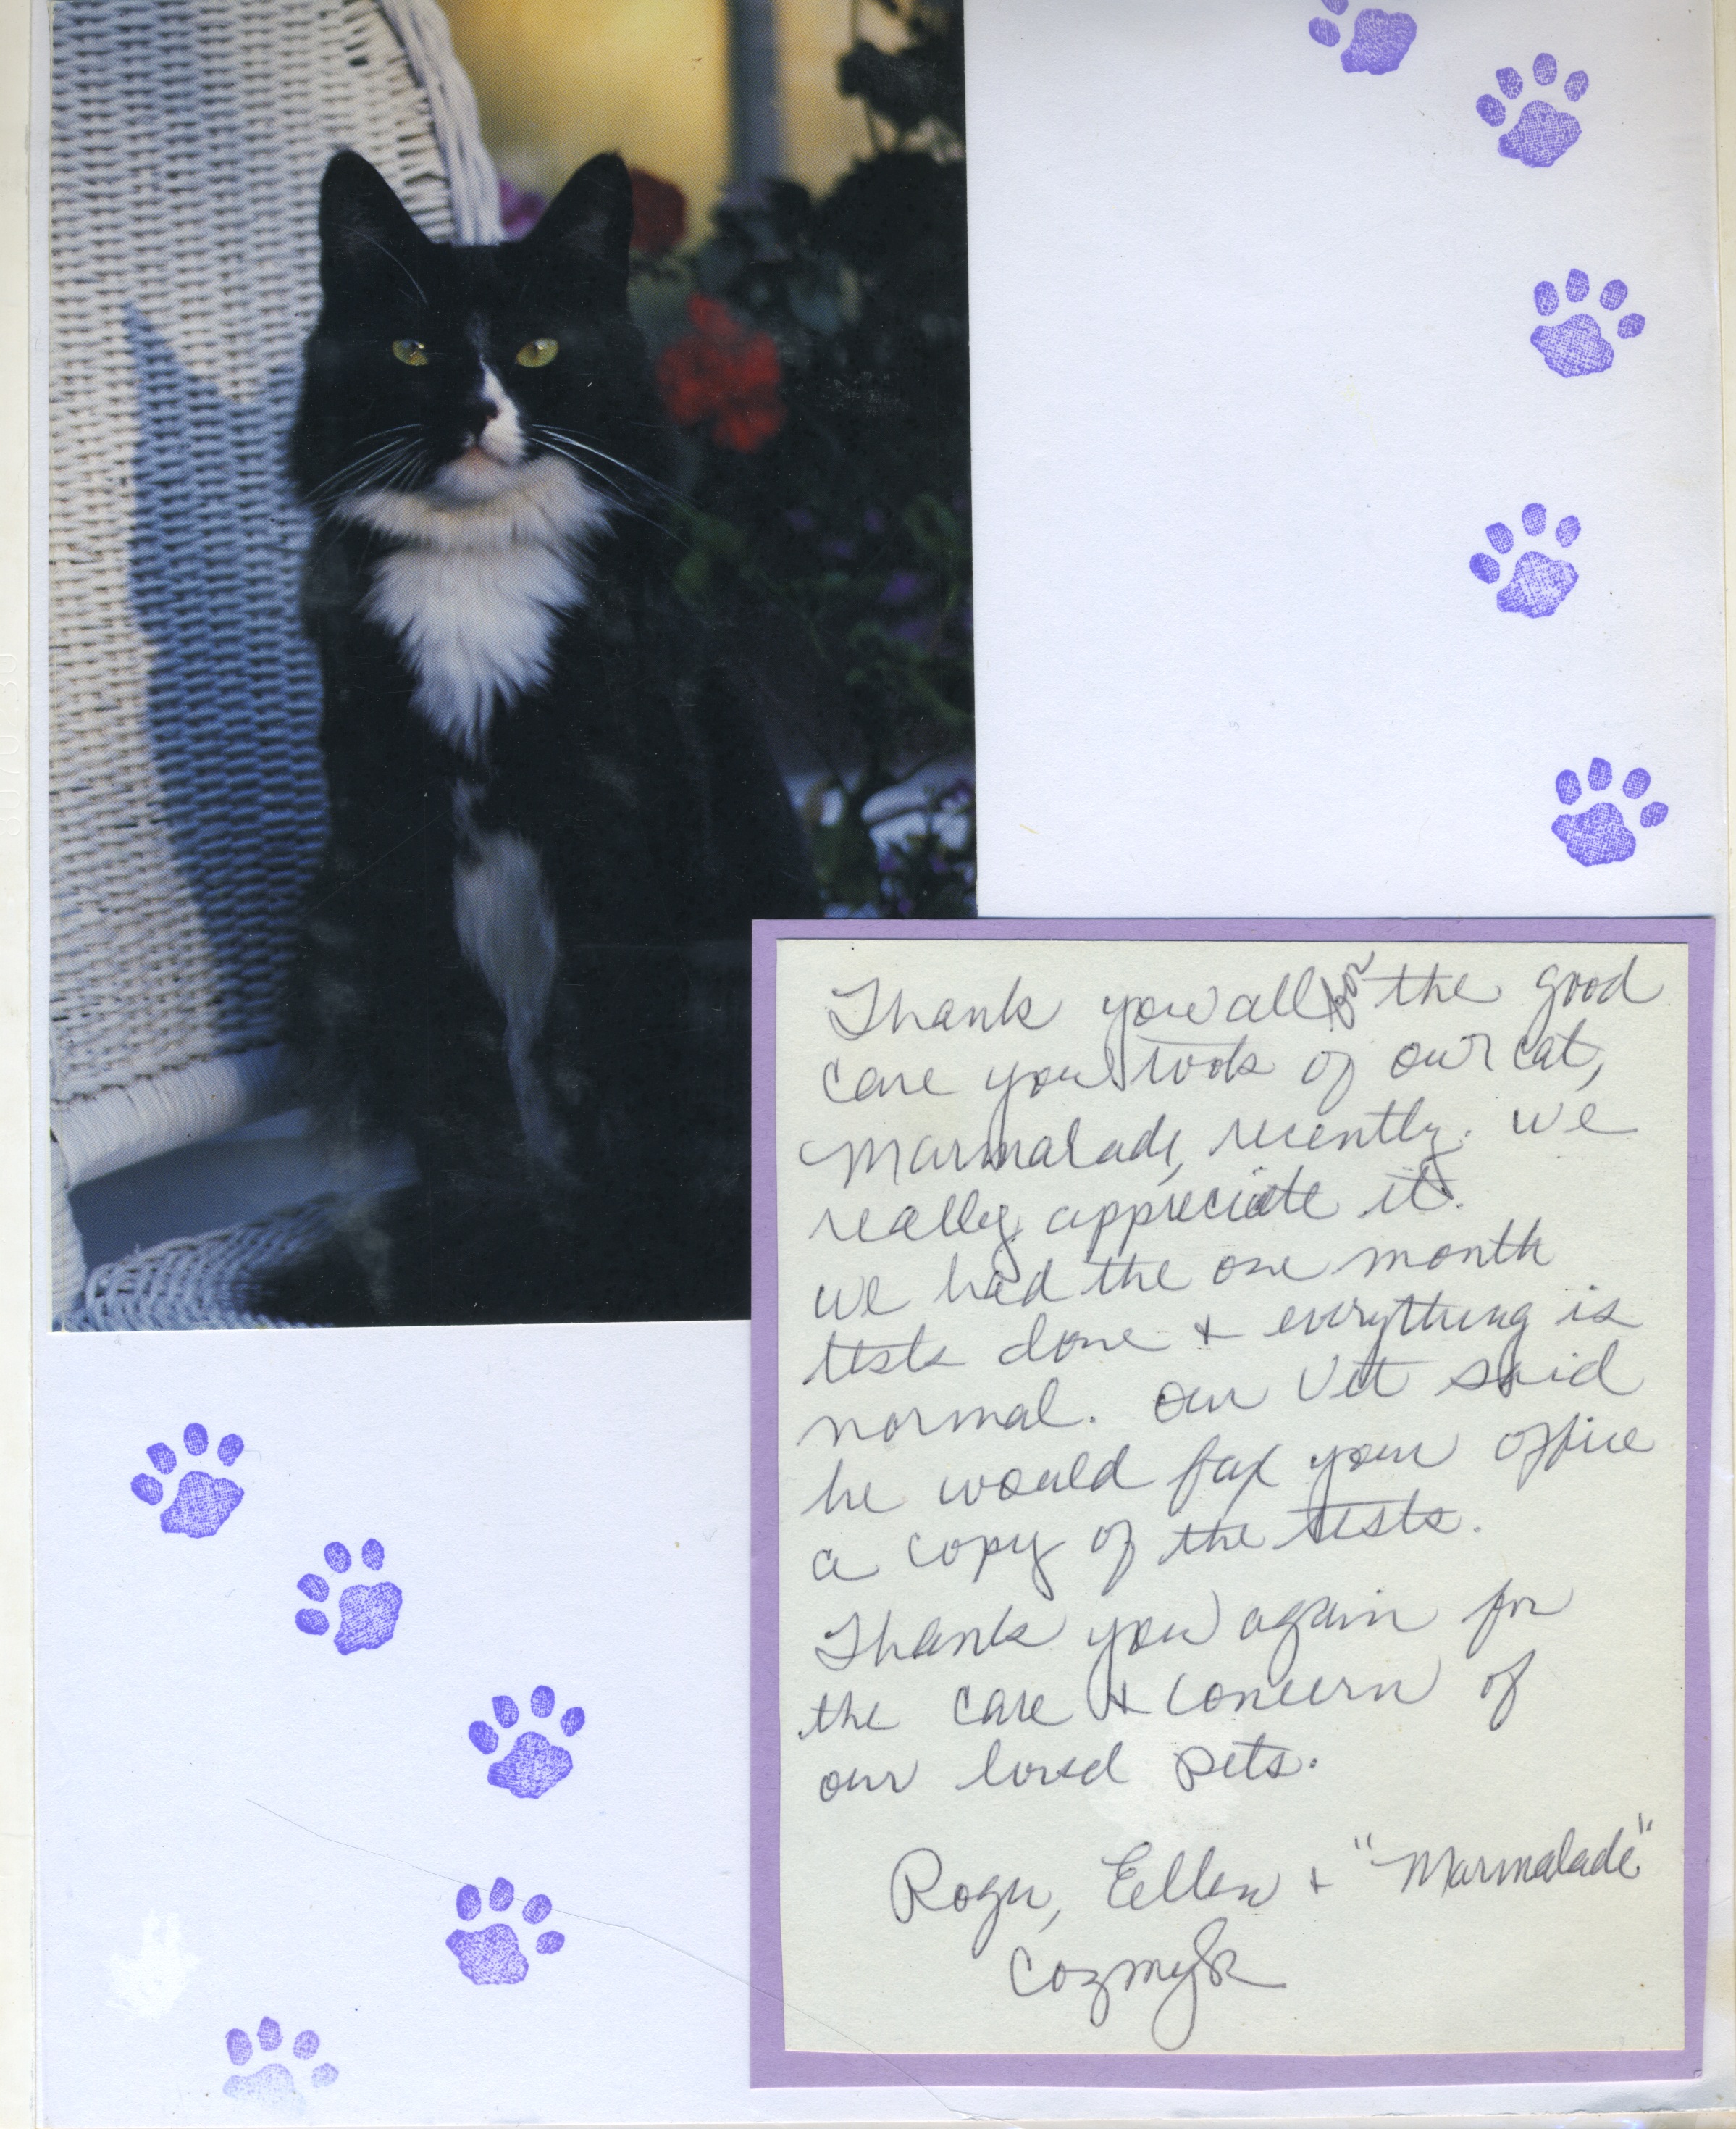 Thank you all for the good
care you took of our cat,
Marmalade, recently. We
really appreciate it.
We had the one month
tests done + everything is
normal. Our Vet said
he would fax your office
a copy of the tests.
Thank you again for
the care + concern of
our loved pets.
Roger, Ellen + "Marmalade"
Cozmyk